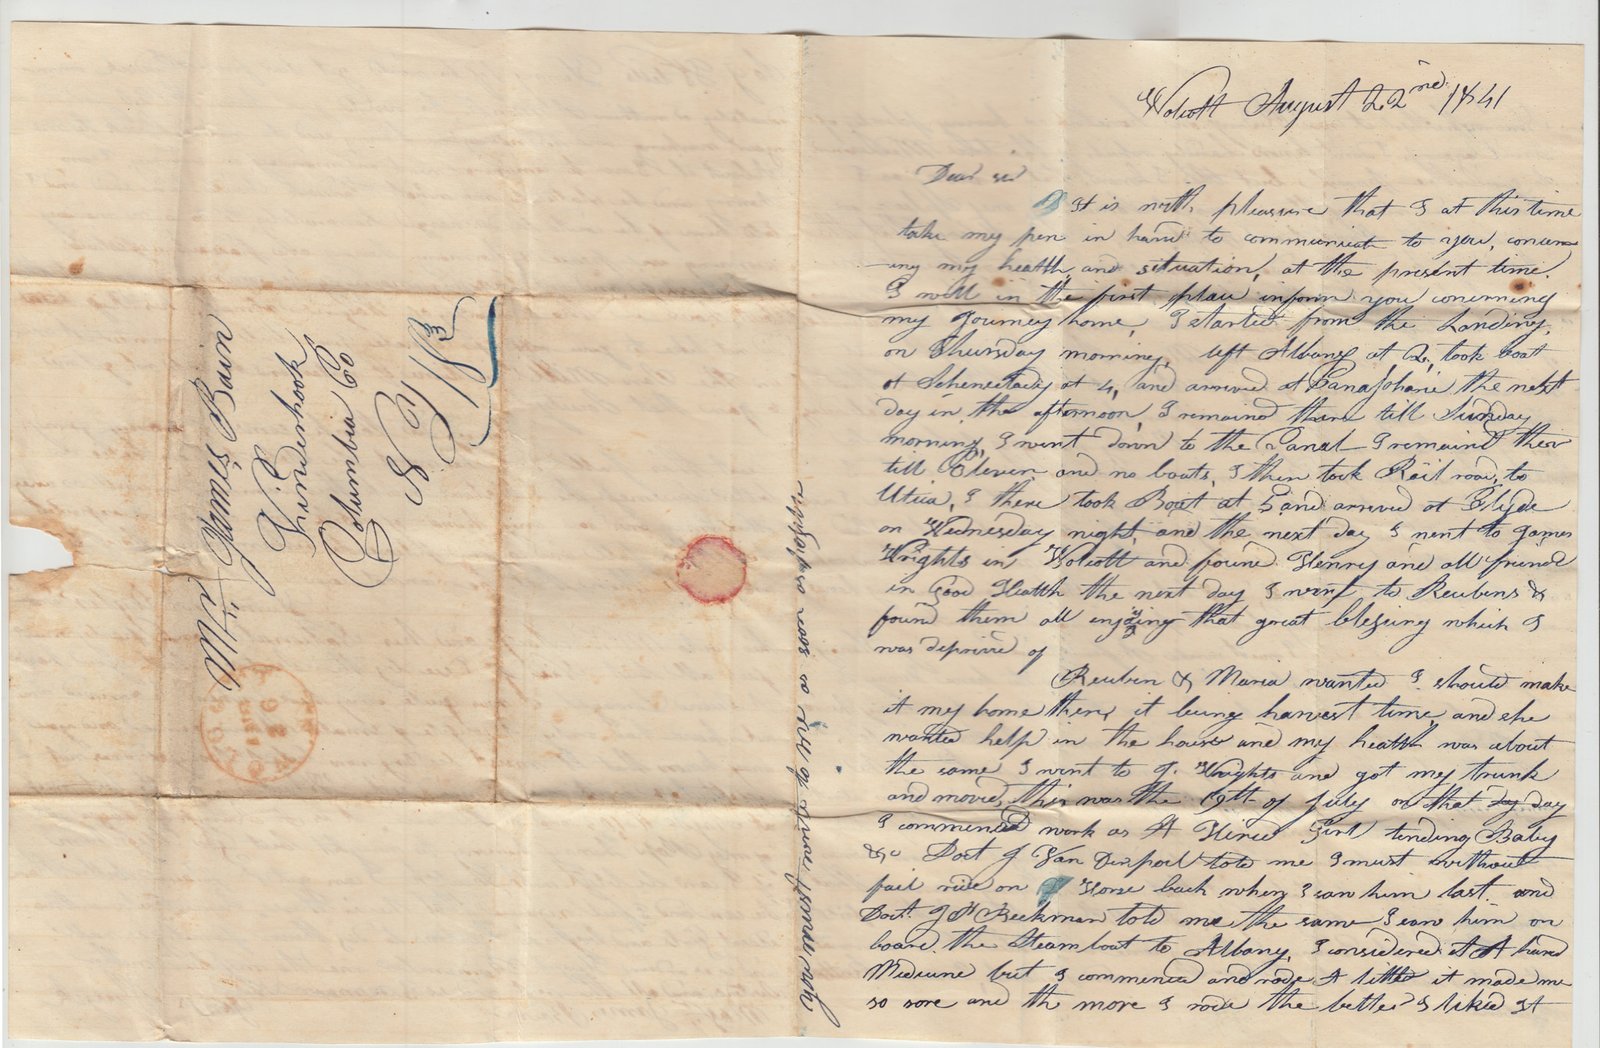 Mr. James Bain
Kinderhook
Columbia Co
N Y
18 3/4
you must write to me as soon as possible
Wolcott August 22nd 1841
Dear sir
It is with pleasure that I at this time
take my pen in hand to communicat to you, concern
ing my health, and situation, at the present time.
I will in the first place inform you concerning
my Journey home, I started from the Landing,
on Thursday morning, left Albany at 2, took boat
at Schenectady at 4, and arrived at Canajoharie the next
day in the afternoon, I remained there till Sunday
morning, I went down to the Canal I remained ther
till Eleven and no boats, I then took Rail road, to
Utica, I there took Boat at 5 and arrived at Clyde
on Wednesday night, and the next day I went to James
Wrights in Wolcott and found Henry and all friends
in Good Health the next day I went to Reubens &
found them all enjoying that great blessing which I
was deprived of
Reuben & Maria wanted I should make
it my home there, it being harvest time, and she
wanted help in the house and my health was about
the same I went to J. Wrights and got my trunk
and moved, this was the 19th of July on that day
I commenced work as A Hired Girl tending Baby
&c Doct J Van Derpoel told me I must without
fail ride on Horse back when I saw him last and
Doct. J P Beekman told me the same I saw him on
board the Steam boat to Albany, I considered it A hard
Medicine but I commenced and rode A little it made me
so sore and the more I rode the better I liked It